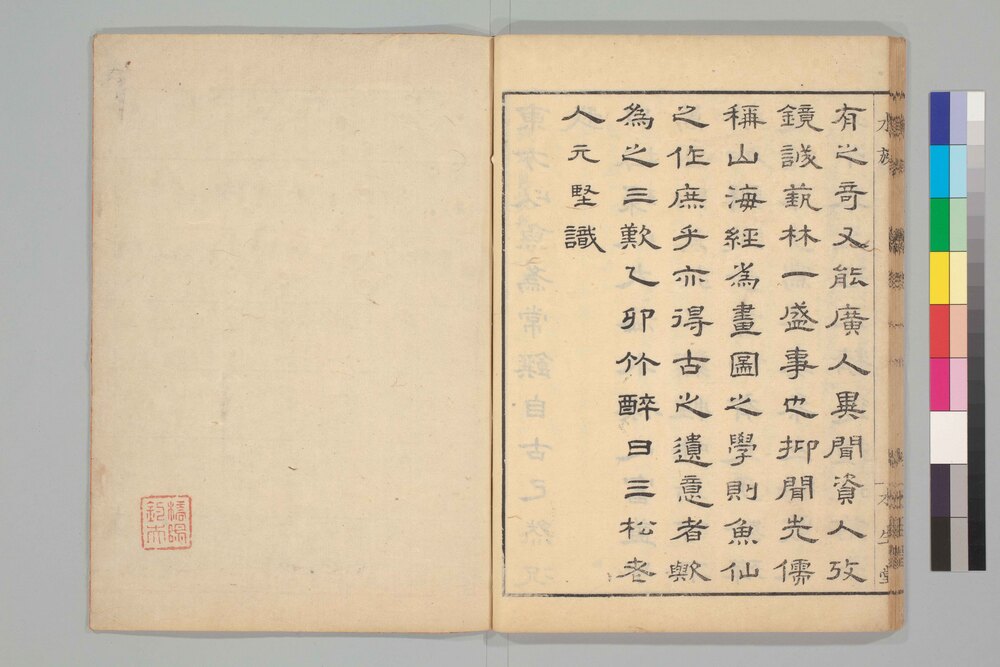 有之奇又能廣人異聞資人攷
鏡誠蓺林一盛事也抑聞先儒
稱山海經為畫圖之學則魚仙
之作庶乎亦得古之遺意者歟
為之三歎乙卯竹醉日三松老
人元堅識
水族